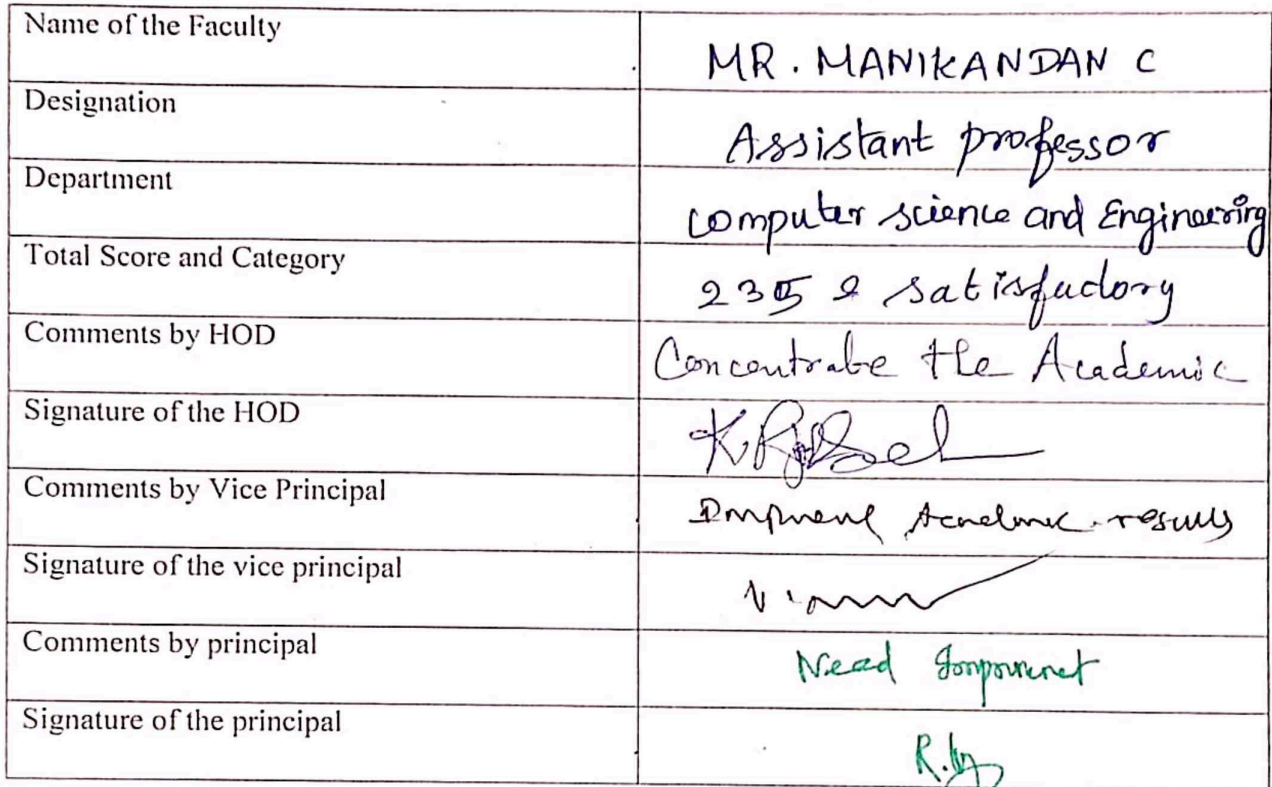 Name of the Faculty
MR. MANIKANDAN C
Designation
Assistant professor
Department
computer science and Engineering
Total Score and Category
235 & satisfactory
Comments by HOD
Concentrate the Academic
Signature of the HOD
Comments by Vice Principal
Academic results
Signature of the vice principal
Comments by principal
Need
Signature of the principal